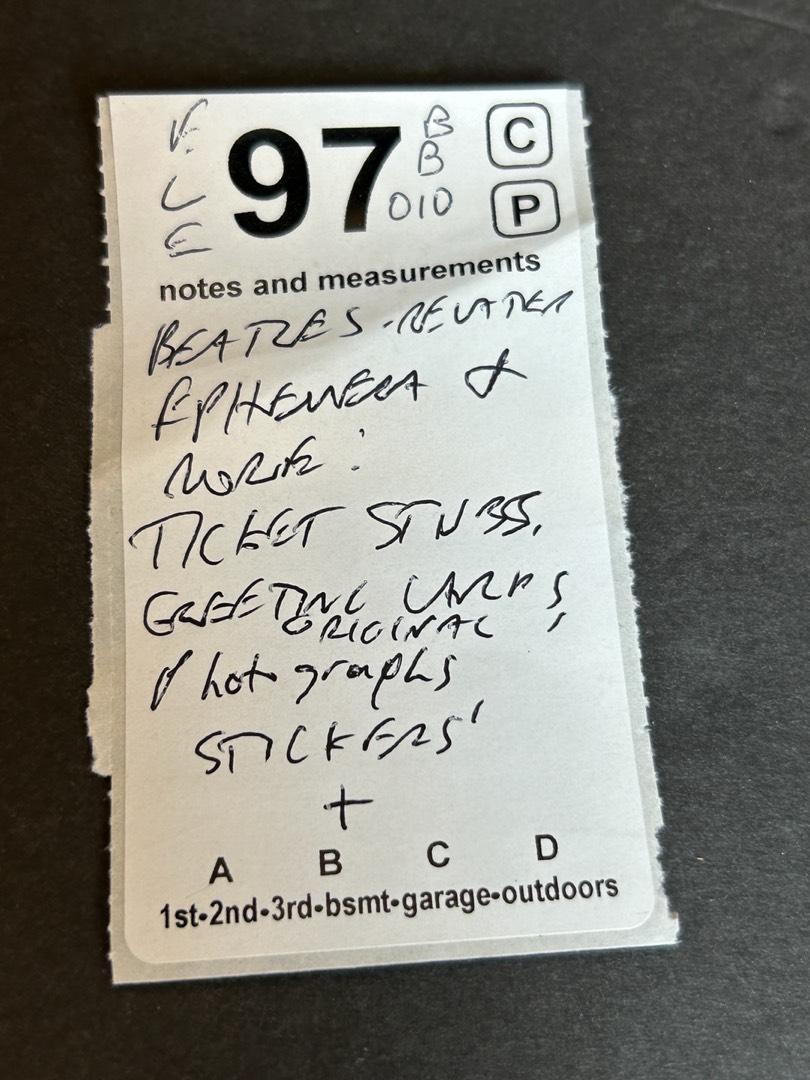 V. L E
97
B B 010
C
P
notes and measurements
BEATLES-RELATED
EPHEMERA &
MORE:
TICKET STUBS,
GREETING CARDS,
ORIGINAL
Photographs
STICKERS'
+
A B C D
1st•2nd•3rd•bsmt•garage•outdoors